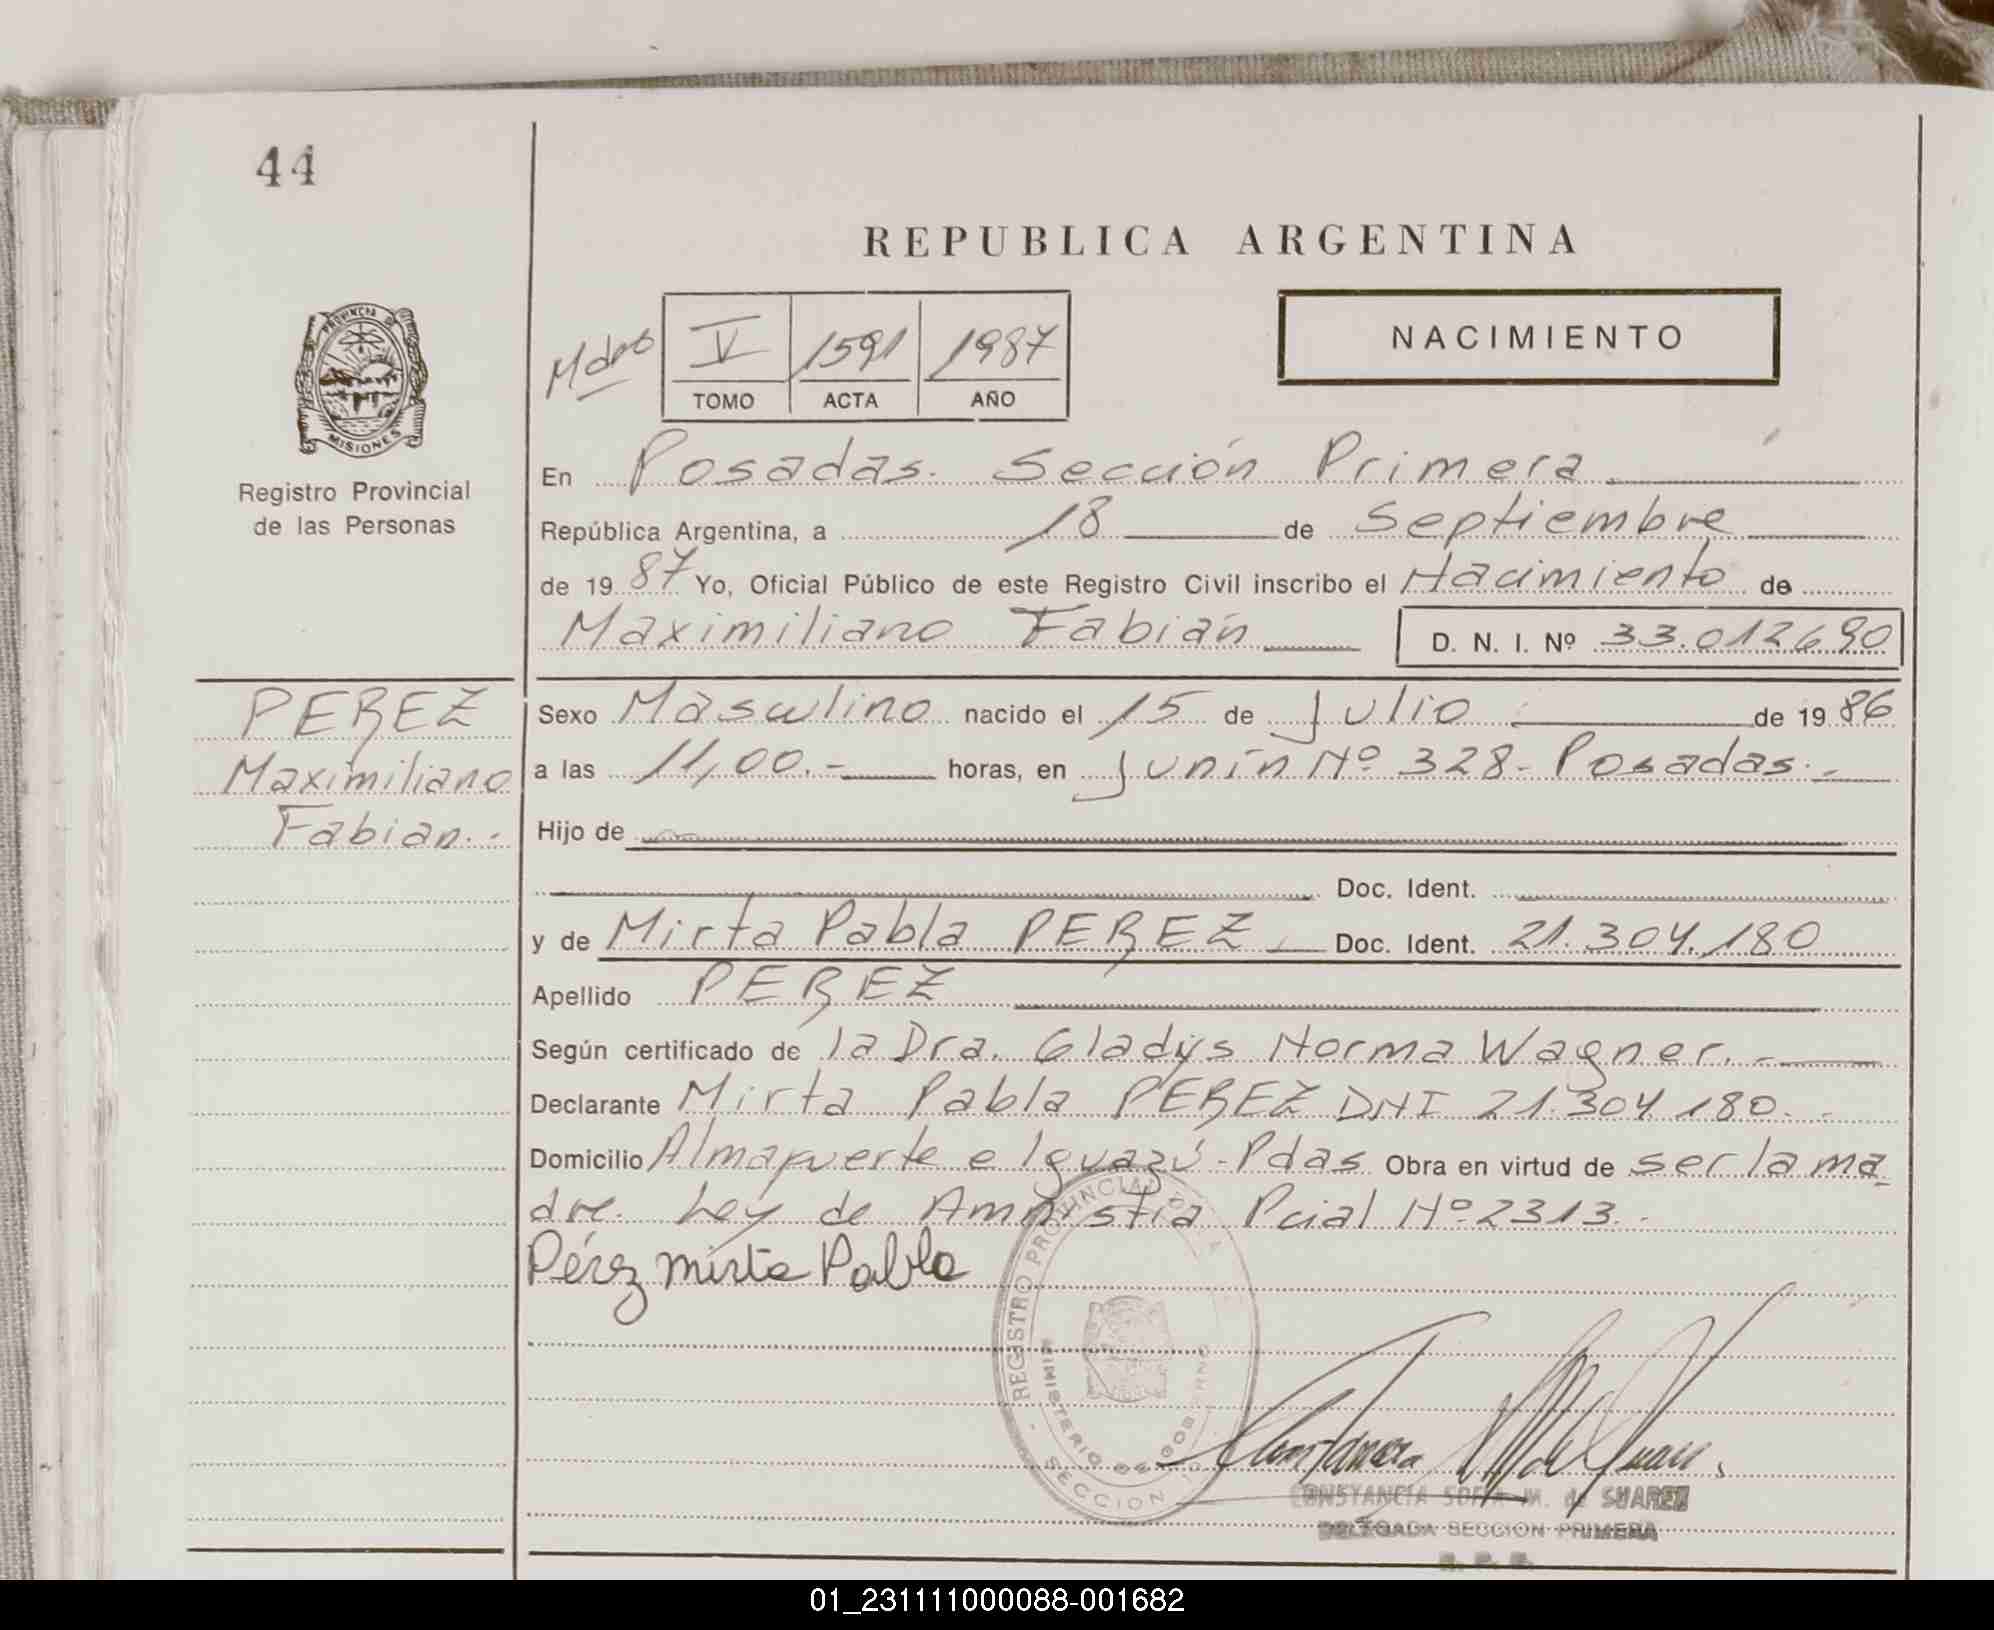 44
REPUBLICA ARGENTINA
PROVINCIA DE
MISIONES
Registro Provincial
de las Personas
Mdes V 1591 1987
TOMO ACTA AÑO
NACIMIENTO
En Posadas. Sección Primera
República Argentina, a 18 de Septiembre
de 19 87 Yo, Oficial Público de este Registro Civil inscribo el Nacimiento de
Maximiliano Fabián D. N. I. Nº 33.012690
PEREZ
Maximiliano
Fabian.-
Sexo Masculino nacido el 15 de Julio de 19 86
a las 11,00.- horas, en Junín Nº 328- Posadas.-
Hijo de
Doc. Ident.
y de Mirta Pabla PEREZ Doc. Ident. 21.304.180
Apellido PEREZ
Según certificado de la Dra. Gladys Norma Wagner.-
Declarante Mirta Pabla PEREZ DNI 21.304 180.-
Domicilio Almafuerte e Iguazú-Pdas Obra en virtud de ser la ma-
dre. Ley de Amnistia Pcial Nº 2313.-
Pérez Mirta Pabla
REGISTRO PROVINCIAL DE LA
MINISTERIO DE GOBIERNO
SECCION 1ª
CONSTANCIA SOFIA M. de SUAREZ
DELEGADA SECCION PRIMERA
R. P. P.
01_231111000088-001682